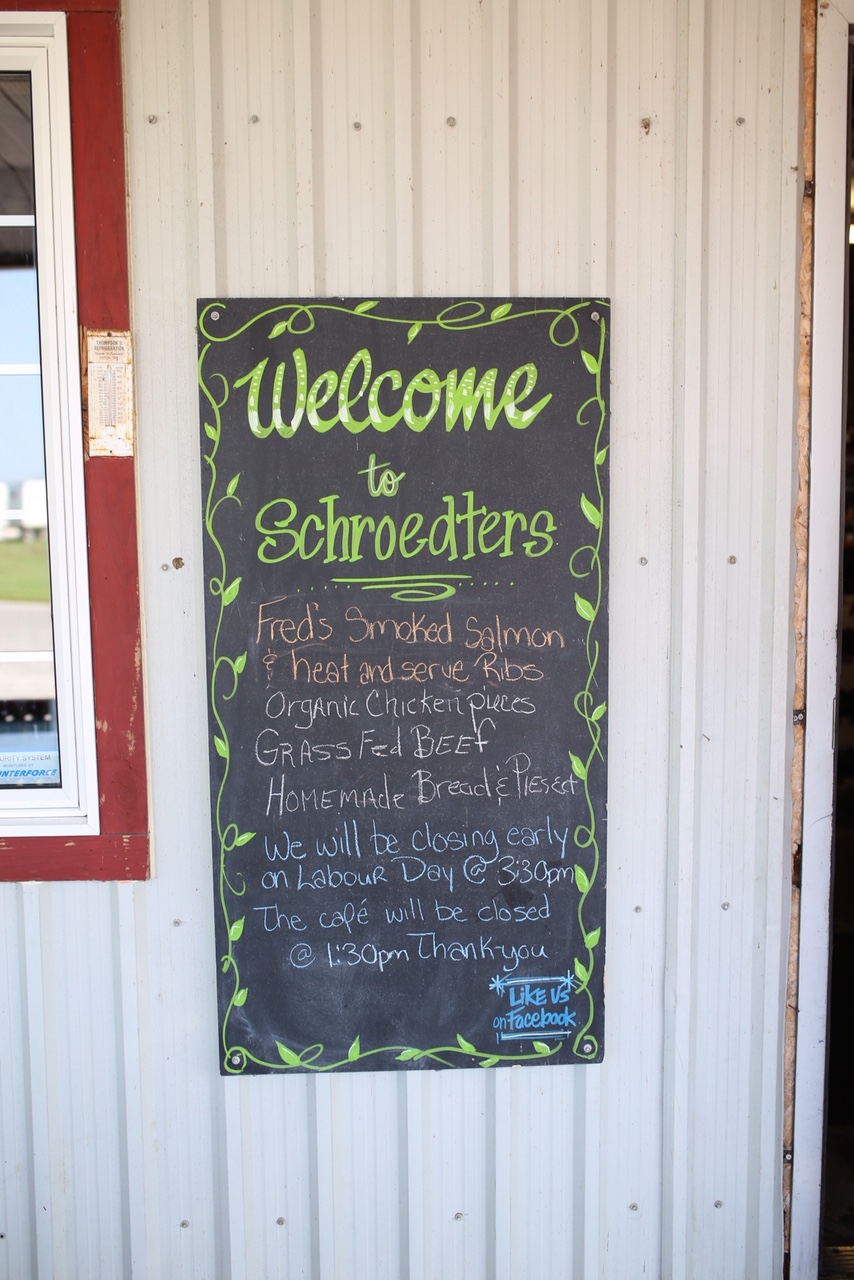 Welcome
to
Schroedters
Fred's Smoked Salmon
& heat and serve Ribs
Organic Chicken pieces
Grass Fed Beef
Homemade Bread & Pies ect
We will be closing early
on Labour Day @ 3:30pm
The café will be closed
@ 1:30pm Thank-you
Like us
on Facebook
THOMPSON'S
REFRIGERATION
URITY SYSTEM
NTERFORCE